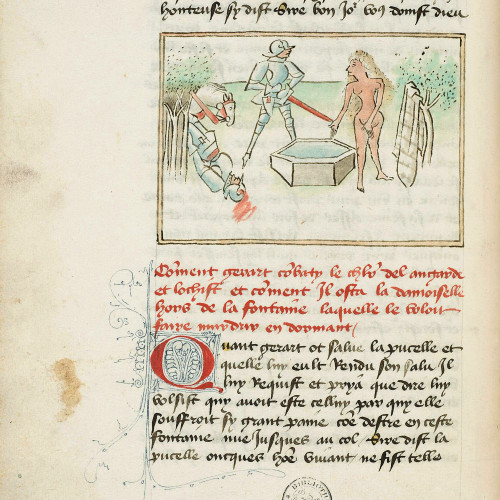 honteuse sy dist Sire bon Jor vos doinst dieu
Coment gerart cobaty le chlr del angarde
et lochist et coment Il osta la damoiselle
hors de la fontaine laquelle le voloit
faire murdrir en dormant
Quant gerart ot salue la pucelle et
quelle luy eult Rendu son salu Il
luy Requist et prya que dire luy
volsist quy avoit este celluy par quy elle
souffroit sy grant paine coe destre en ceste
fontaine nue jusques au col Sire dist la
pucelle oncques hoe vivant ne fist telle
BIBLIOT